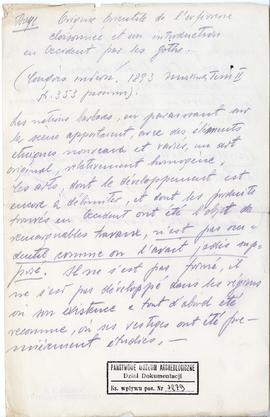 Origine orientale de l'orfèvrerie
cloisonnée et son introduction
en Occident par les Goths.
1893
p. 353
Les nations barbares, en paraissant sur
la scène apportaient, avec des éléments
ethniques nouveaux et variés, un art
original, relativement homogène,
les arts, dont le développement est
encore à délimiter, et dont les produits
trouvés en Occident ont été l'objet de
remarquables travaux, n'est pas occi
dental comme on l'avait jadis sup
posé. Il ne s'est pas formé, il
ne s'est pas développé dans les régions
où son existence a tout d'abord été
reconnue, où ses vestiges ont été pre
mièrement étudiés.
PAŃSTWOWE MUZEUM ARCHEOLOGICZNE
Dział Dokumentacji
Ks. wpływu poz. Nr 7879